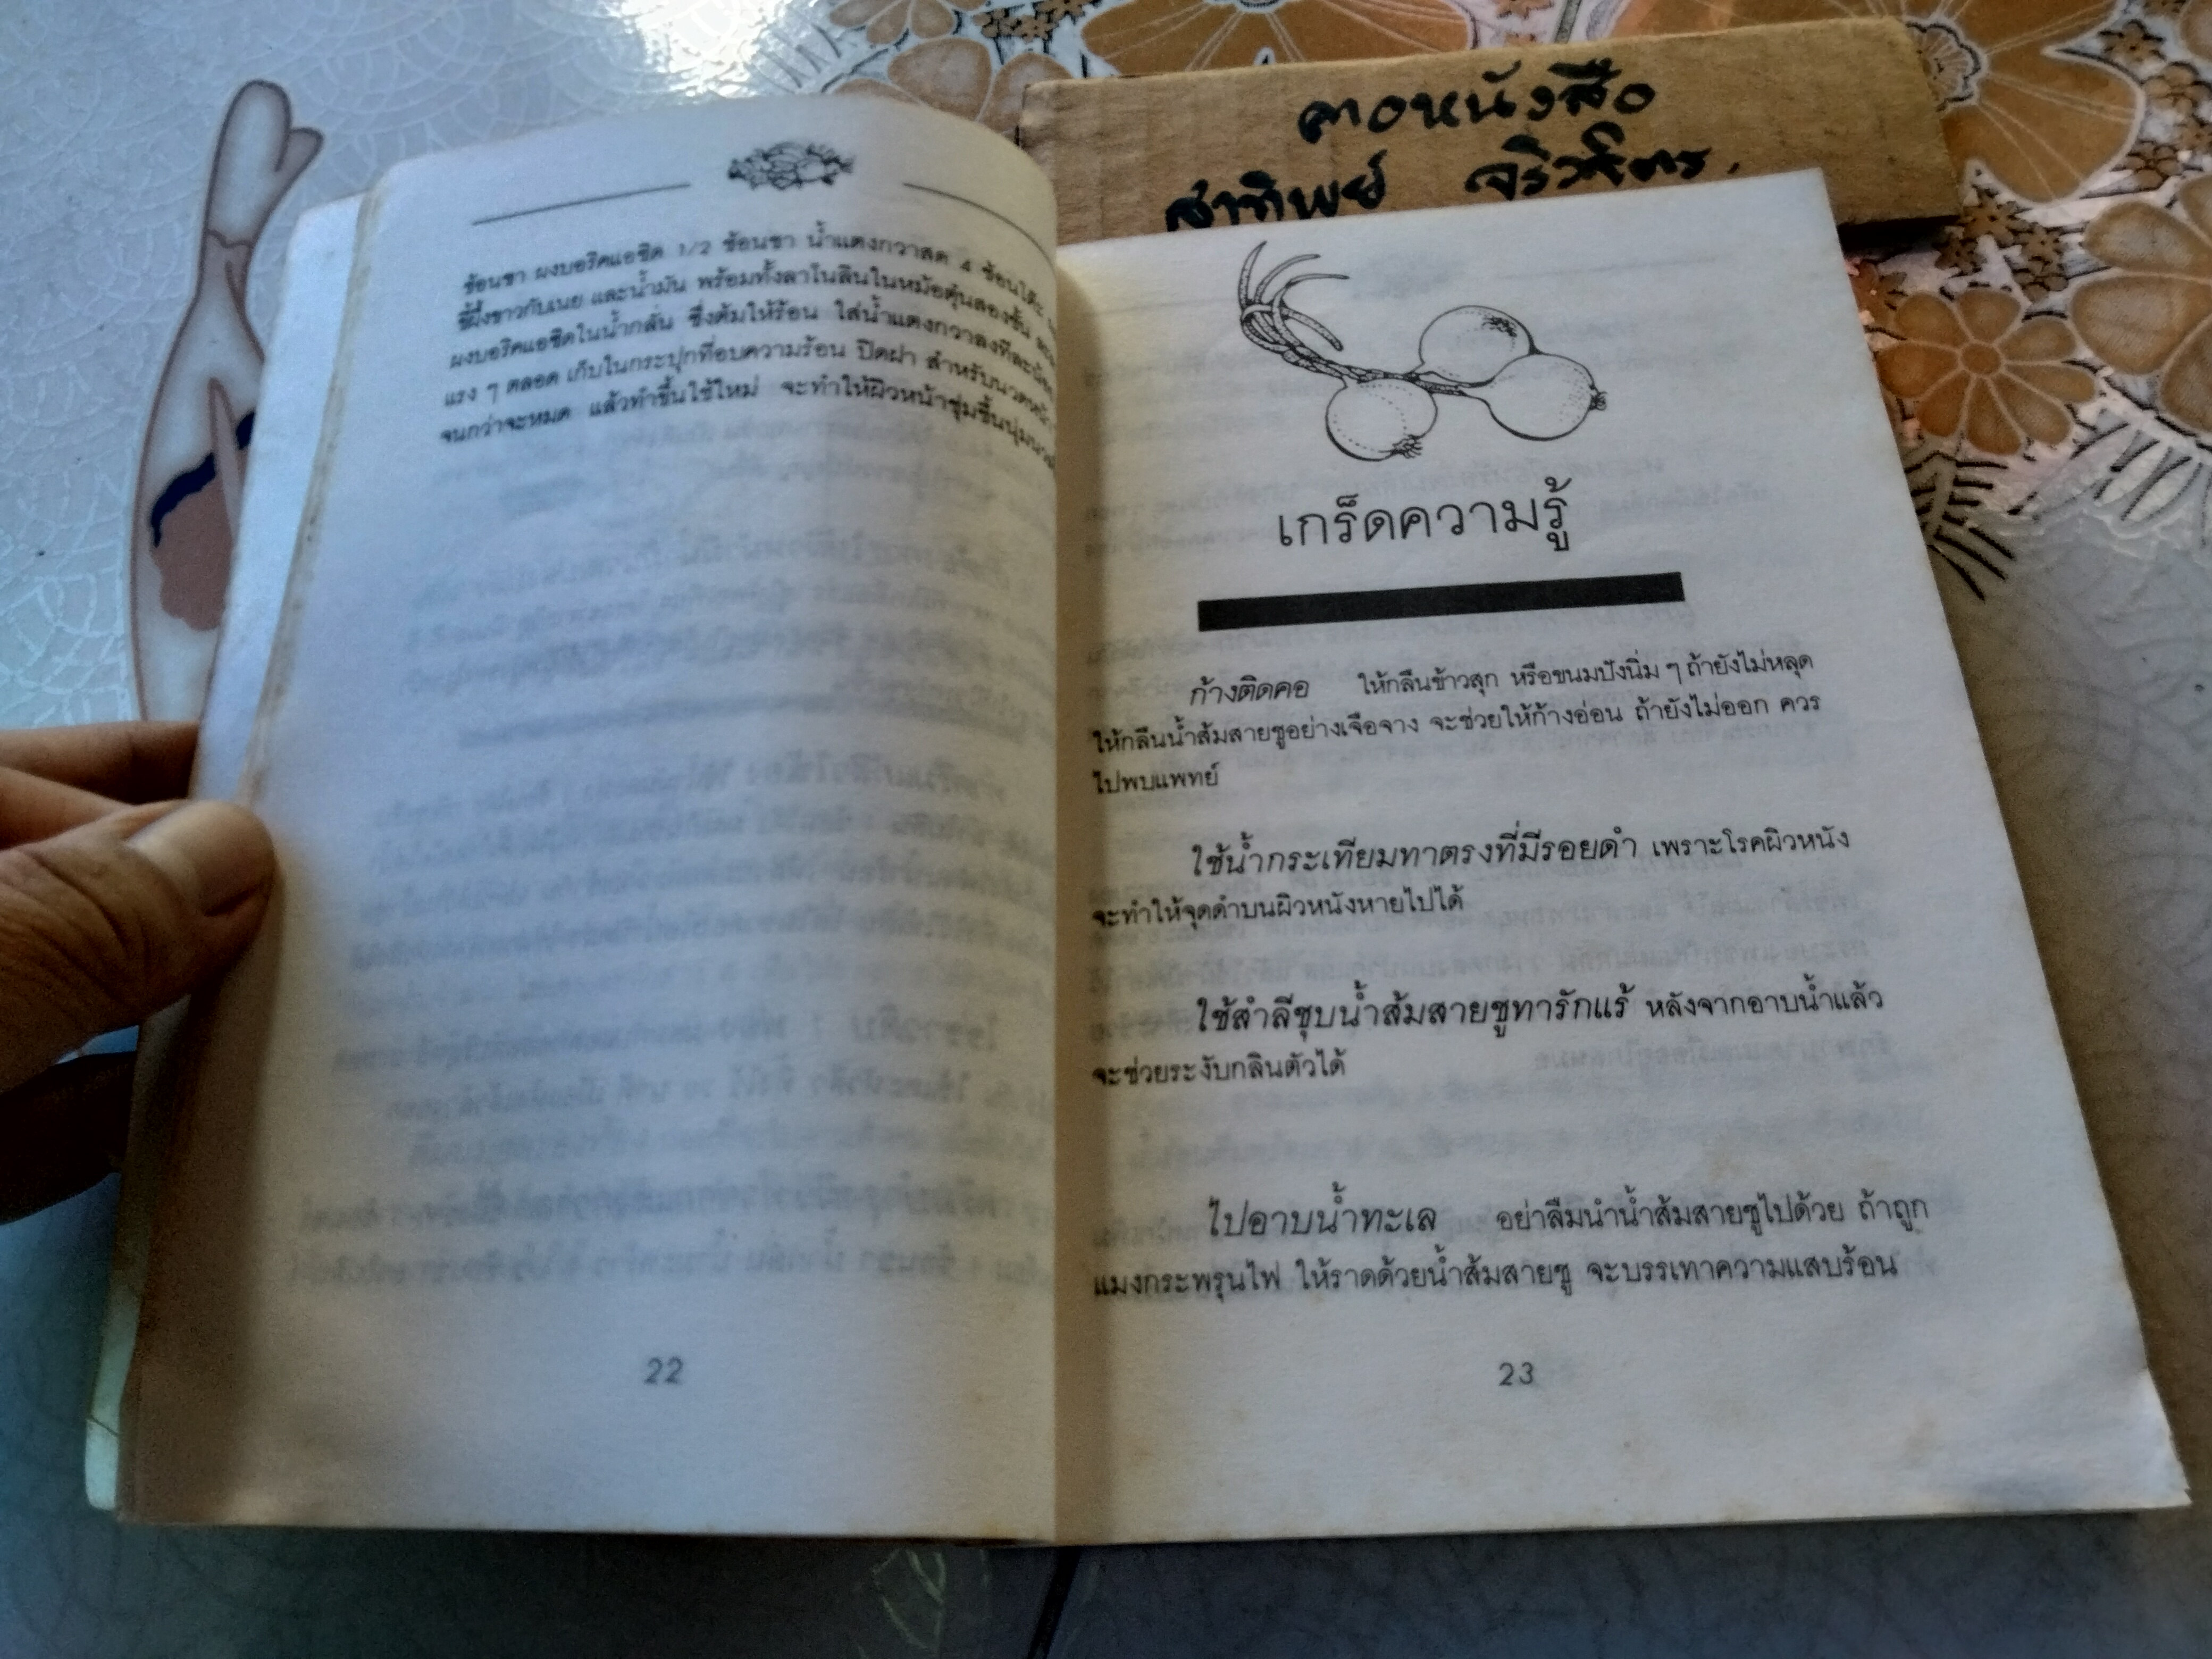 ตาอหนังสือ
สาทิพย์
ช้อนชา ผงบอริคแอซิด 1/2 ช้อนชา น้ำแตงกวาสด 4 ช้อนโต๊ะ
ขี้ผึ้งขาวกับเนย และน้ำมัน พร้อมทั้งลาโนลินในหม้อตุ๋นสองชั้น
ผงบอริคแอซิดในน้ำกลั่น ซึ่งต้มให้ร้อน ใส่น้ำแตงกวาลงทีละน้อย
แรง ๆ ตลอด เก็บในกระปุกที่อบความร้อน ปิดฝา สำหรับนวดหน้า
จนกว่าจะหมด แล้วทำขึ้นใช้ใหม่ จะทำให้ผิวหน้าชุ่มชื้นนุ่มนวล
22
เกร็ดความรู้
ก้างติดคอ ให้กลืนข้าวสุก หรือขนมปังนิ่ม ๆ ถ้ายังไม่หลุด
ให้กลืนน้ำส้มสายชูอย่างเจือจาง จะช่วยให้ก้างอ่อน ถ้ายังไม่ออก ควร
ไปพบแพทย์
ใช้น้ำกระเทียมทาตรงที่มีรอยดำ เพราะโรคผิวหนัง
จะทำให้จุดดำบนผิวหนังหายไปได้
ใช้สำลีชุบน้ำส้มสายชูทารักแร้ หลังจากอาบน้ำแล้ว
จะช่วยระงับกลิ่นตัวได้
ไปอาบน้ำทะเล อย่าลืมนำน้ำส้มสายชูไปด้วย ถ้าถูก
แมงกระพรุนไฟ ให้ราดด้วยน้ำส้มสายชู จะบรรเทาความแสบร้อน
23